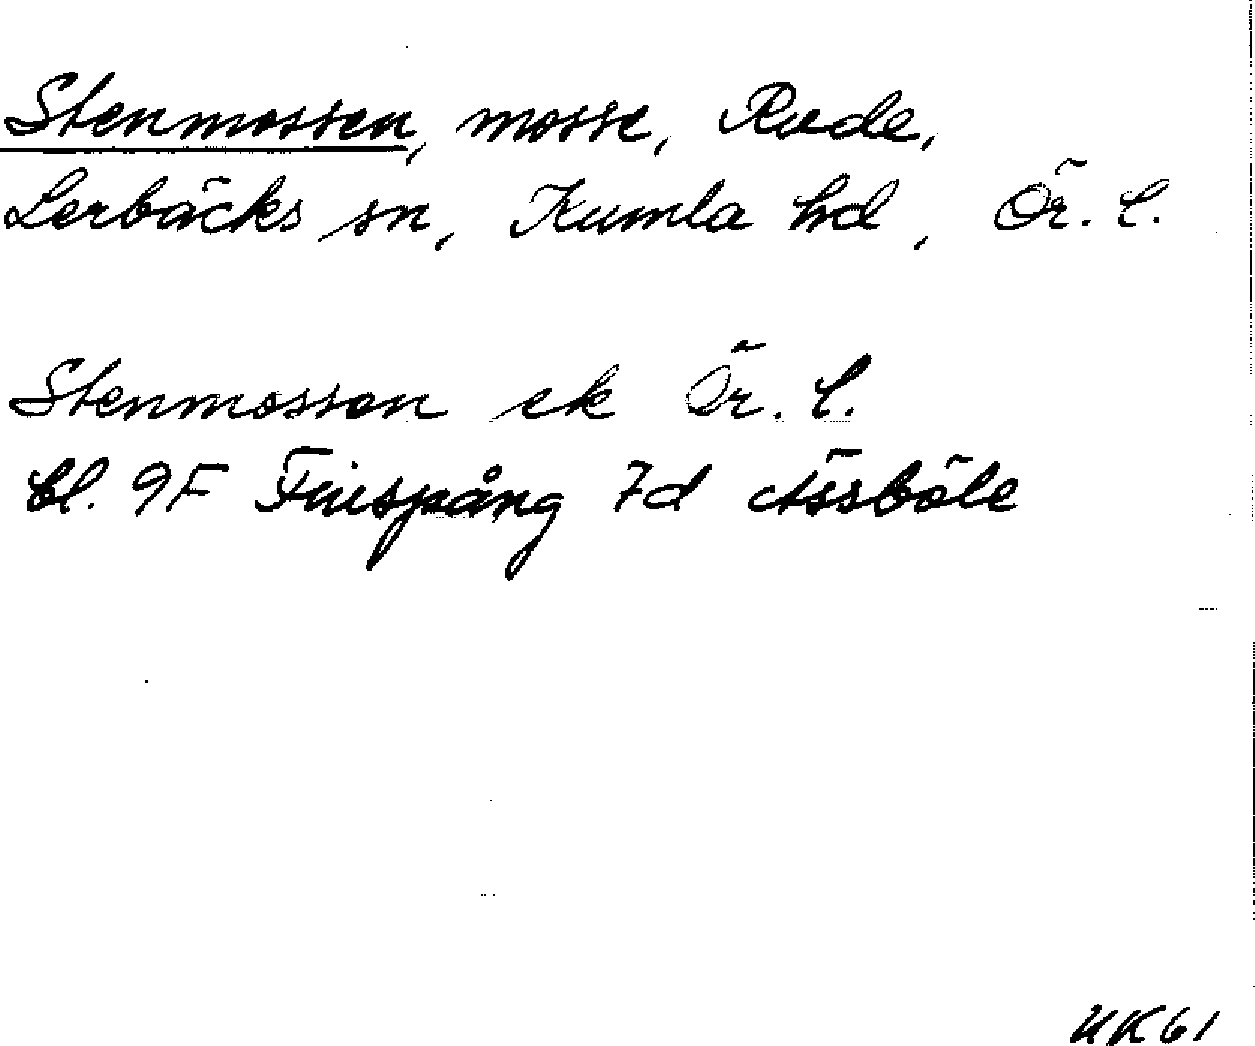 Stenmossen, mosse, Rude,
Lerbäcks sn, Kumla hd, Ör. l.
Stenmossen ek Ör. l.
bl. 9F Finspång 7d Åssböle
UK61